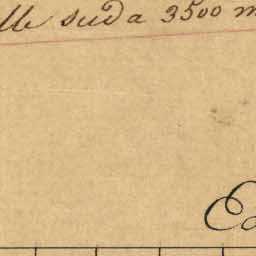 lle sud a 3500 m
Ec